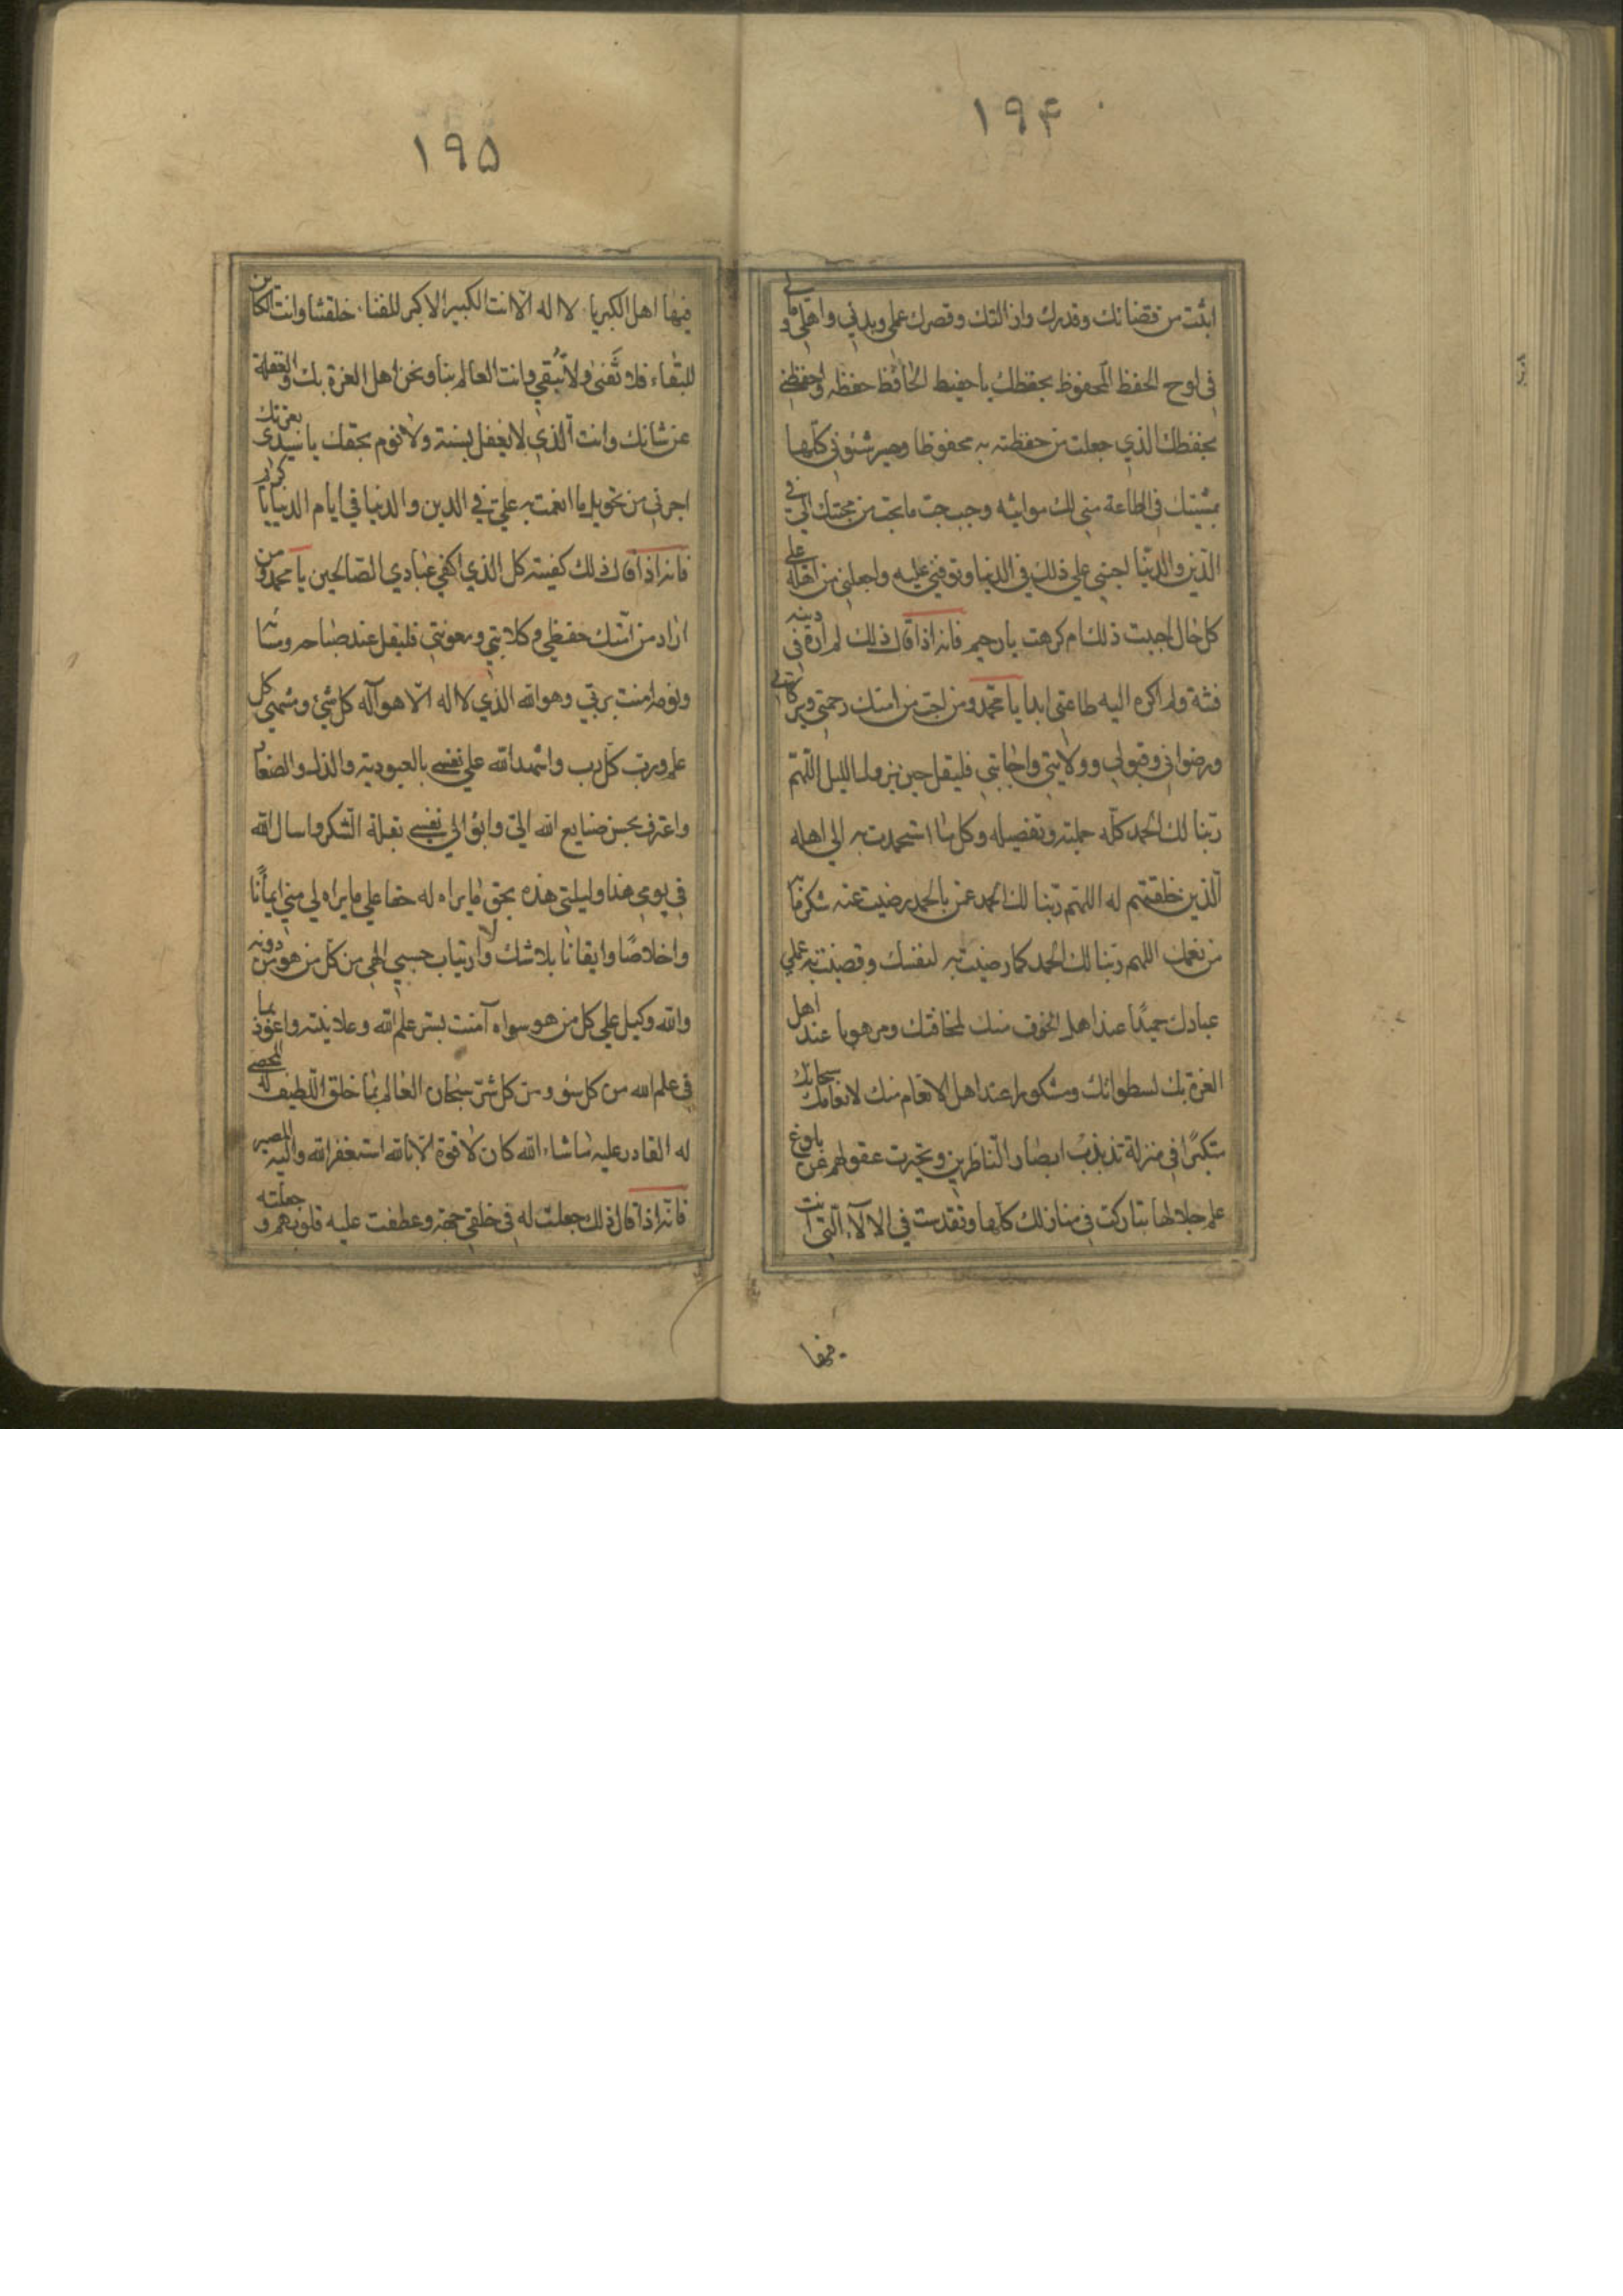 ۱۹۴
اثبت من قضائك وقدرك وازالتك وقصرك عملي وبدني واهلي ومالي
في لوح الحفظ المحفوظ بحفظك يا حفيظ الحافظ حفظه واحفظني
بحفظك الذي جعلت من حفظته به محفوظا وصير شئوني كلها
بمشيتك في الطاعة مني لك مواتيه وحبب حب ما تحب من محبتك الي في
الدين والدنيا احيني علي ذلك في الدنيا وتوفني عليه واجعلني من اهله علي
كل حال احببت ذلك ام كرهت يا رحيم فانه اذا قال ذلك لم اره في دينه
فتنة ولم اكره اليه طاعتي ابدا يا محمد ومن احب من امتك رحمتي وبركاتي
ورضواني وقبولي وولايتي واجابتي فليقل حين يزول الليل اللهم
ربنا لك الحمد كله جملته وتفصيله وكل ما استحمدت به الي اهله
الذين خلقتهم له اللهم ربنا لك الحمد عمن بالحمد رضيت عنه شكر ما به
من نعمك اللهم ربنا لك الحمد كما رضيت به لنفسك وقضيت به علي
عبادك حميدا عند اهل الخوف منك لمخافتك ومرهوبا عند اهل
العزة بك لسطواتك ومشكورا عند اهل الانعام منك لانعامك سبحانك
متكبرا في منزلة تذبذبت ابصار الناظرين وتحيرت عقولهم عن بلوغ
علم جلالها تباركت في منازلك كلها وتقدست في الالآء التي انت
فيها
۱۹۵
فيها اهل الكبرياء لا اله الا انت الكبير الاكبر للفناء خلقتنا وانت الكائن
للبقاء فلا تفني ولا نبقي وانت العالم بنا ونحن اهل الغرة بك والغفلة
عن شانك وانت الذي لا يغفل بسنة ولا نوم بحقك يا سيدي بعزتك
اجرني من تحويل ما انعمت به علي في الدين والدنيا في ايام الدنيا يا كريم
فانه اذا قال ذلك كفيته كل الذي اكفي عبادي الصالحين يا محمد ومن
اراد من امتك حفظي وكلائتي ومعونتي فليقل عند صباحه ومسائه
ونومه امنت بربي وهو الله الذي لا اله الا هو اله كل شيء ومنتهي كل
علم ورب كل رب واشهد الله علي نفسي بالعبودية والذلة والصغار
واعترف بحسن صنايع الله الي وابوء الي نفسي بقلة الشكر واسال الله
في يومي هذا وليلتي هذه بحق ما يراه له حقا علي ما يراه لي مني ايمانا
واخلاصا وايقانا بلا شك ولا ارتياب حسبي الهي من كل من هو دونه
والله وكيل علي كل من هو سواه آمنت بسر علم الله وعلانيته واعوذ بما
في علم الله من كل سوء ومن كل شر سبحان العالم بما خلق اللطيف له المحصي
له القادر عليه ما شاء الله كان لا قوة الا بالله استغفر الله واليه المصير
فانه اذا قال ذلك جعلت له في خلقي جهة وعطفت عليه قلوبهم وجعلته